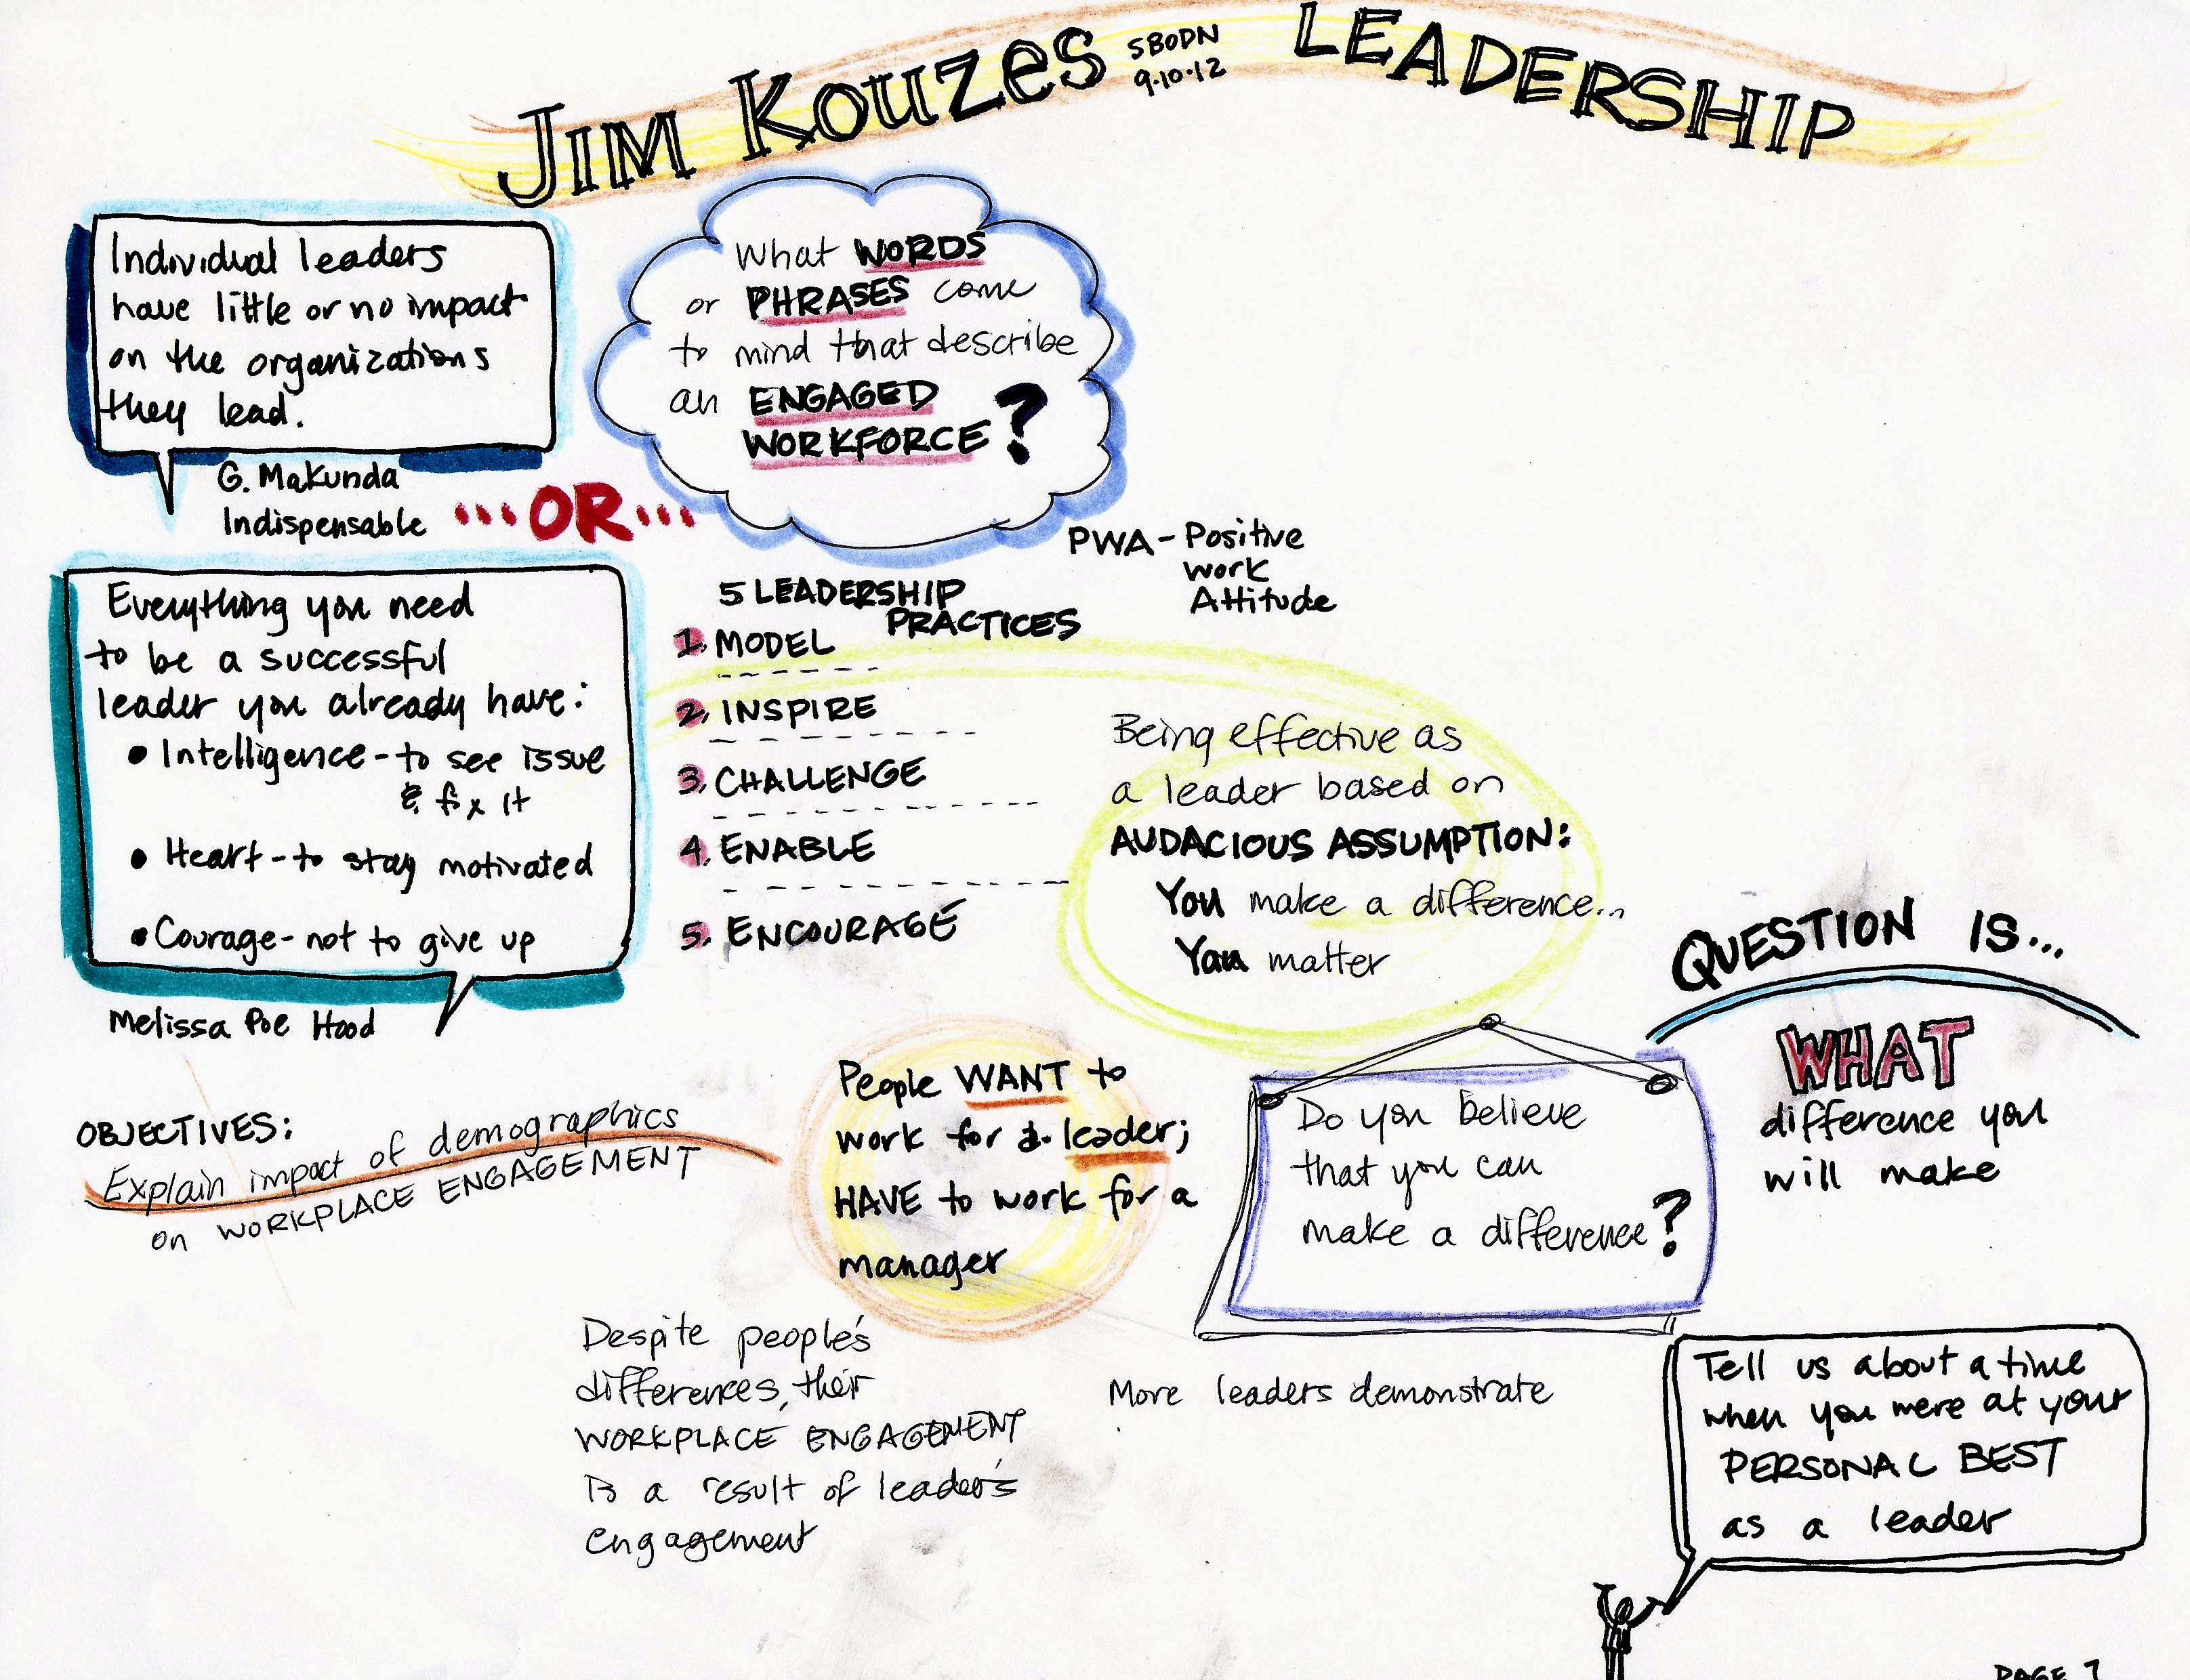 JIM KOUZES
SBODN
9.10.12
LEADERSHIP
Individual leaders
have little or no impact
on the organizations
they lead.
G. Makunda
Indispensable
...OR...
Everything you need
to be a successful
leader you already have:
• Intelligence - to see issue
& fix it
• Heart - to stay motivated
• Courage - not to give up
Melissa Poe Hood
OBJECTIVES:
Explain impact of demographics
on WORKPLACE ENGAGEMENT
What WORDS
or PHRASES come
to mind that describe
an ENGAGED
WORKFORCE?
PWA - Positive
Work
Attitude
5 LEADERSHIP
PRACTICES
1. MODEL
2. INSPIRE
3. CHALLENGE
4. ENABLE
5. ENCOURAGE
Being effective as
a leader based on
AUDACIOUS ASSUMPTION:
You make a difference...
You matter
People WANT to
work for a leader;
HAVE to work for a
manager
Despite people's
differences, their
WORKPLACE ENGAGEMENT
is a result of leader's
engagement
Do you believe
that you can
make a difference?
More leaders demonstrate
QUESTION IS...
WHAT
difference you
will make
Tell us about a time
when you were at your
PERSONAL BEST
as a leader
PAGE